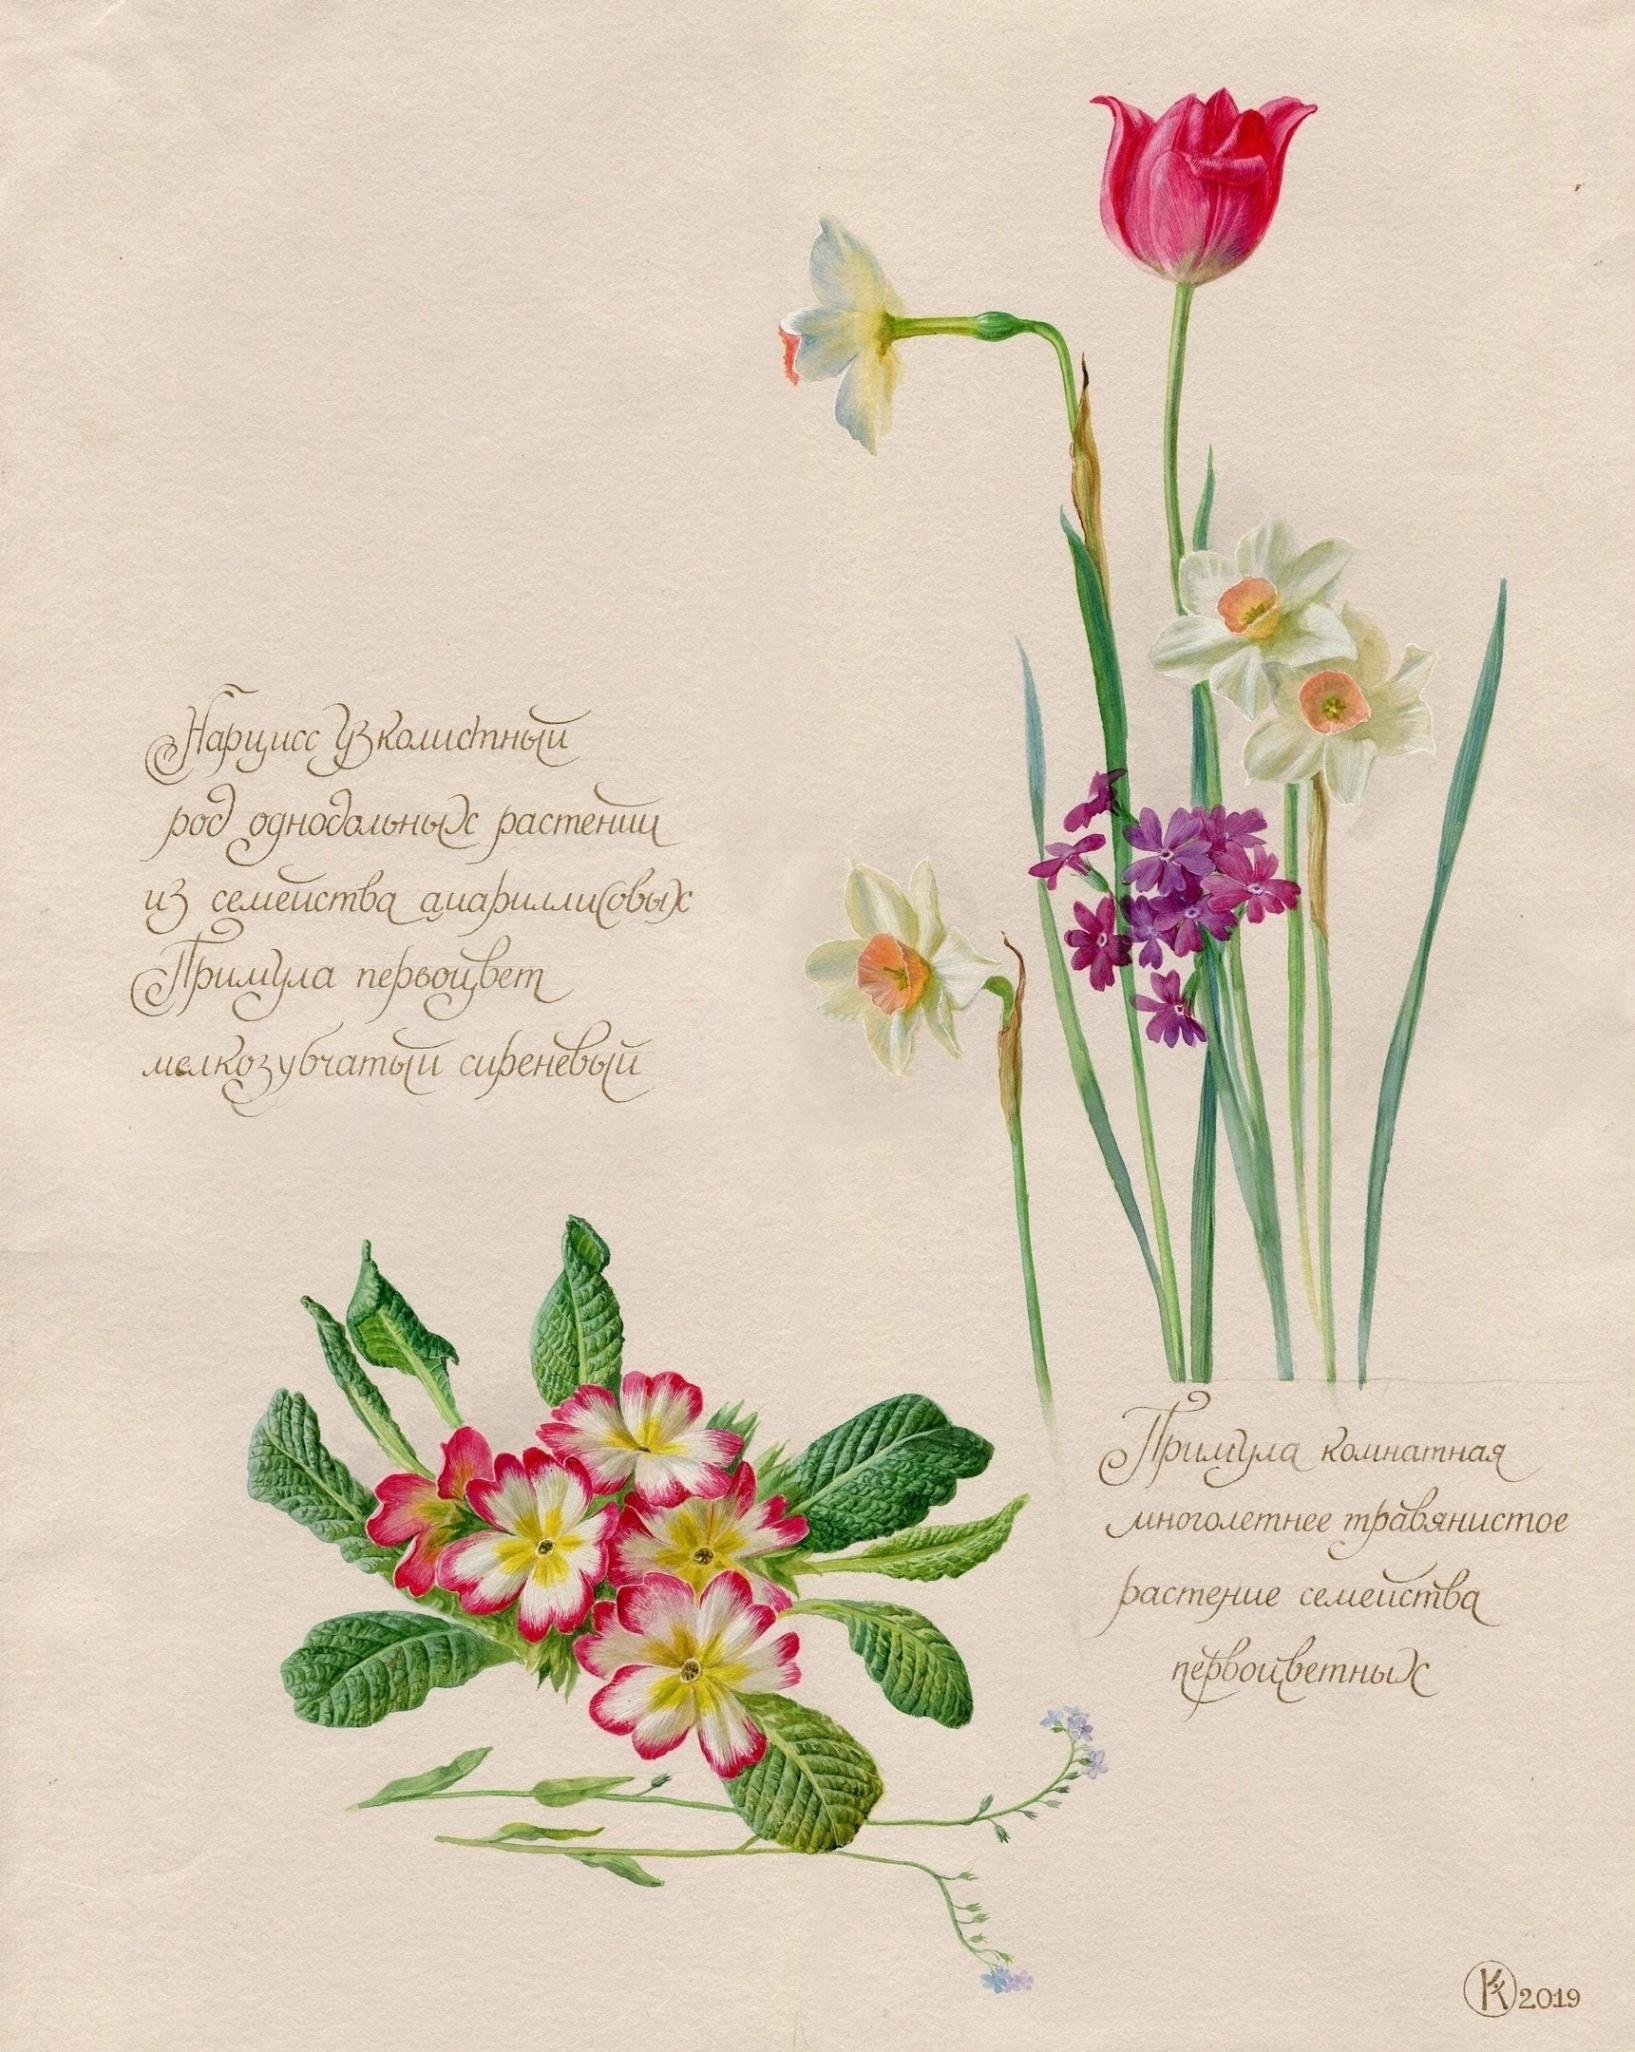 Нарцисс узколистный
род однодольных растений
из семейства амариллисовых
Примула первоцвет
мелкозубчатый сиреневый
Примула комнатная
многолетнее травянистое
растение семейства
первоцветных
К 2019